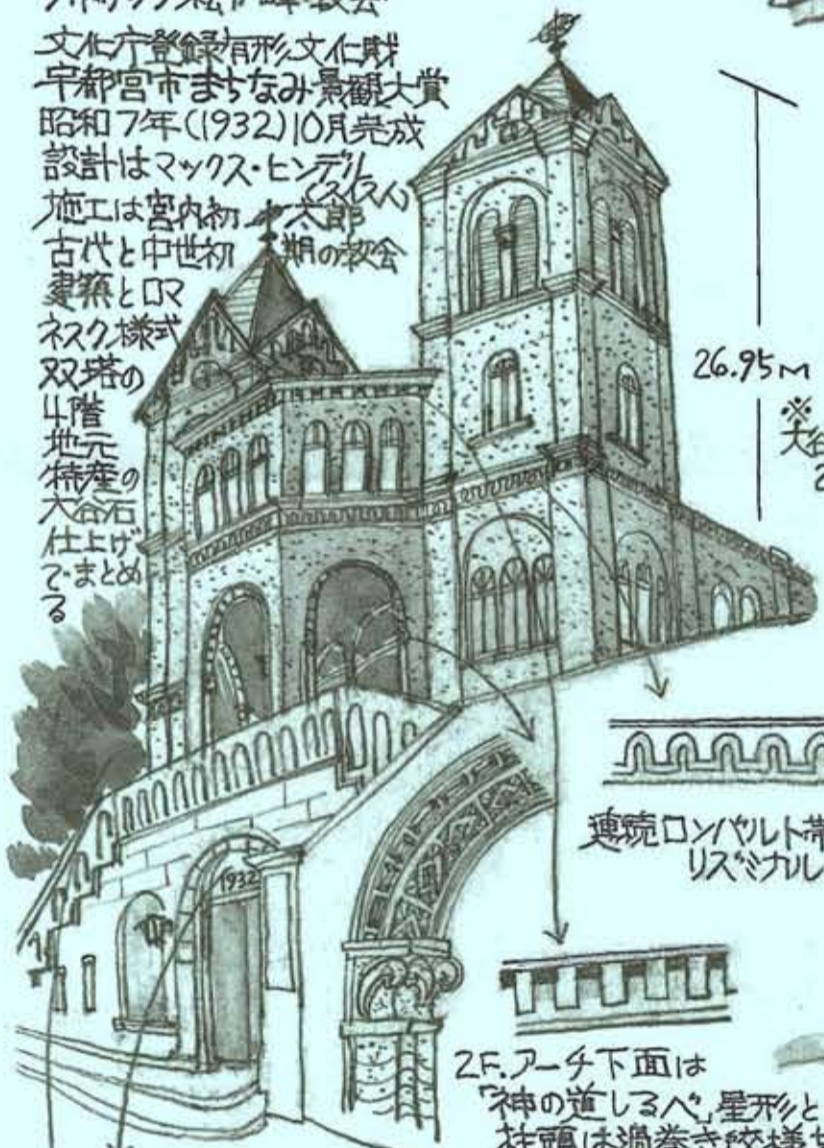 カトリック松が峰教会
文化庁登録有形文化財
宇都宮市まちなみ景観大賞
昭和7年(1932)10月完成
設計はマックス・ヒンデル
(スイス人)
施工は宮内初太郎
古代と中世初期の教会
建築とロマ
ネスク様式
双塔の
4階
地元
特産の
大谷石
仕上げ
でまとめ
る
26.95M
※
大谷
2
連続ロンバルト帯
リズミカル
1932
2F.アーチ下面は
「神の道しるべ」星形と
柱頭は渦巻き紋様